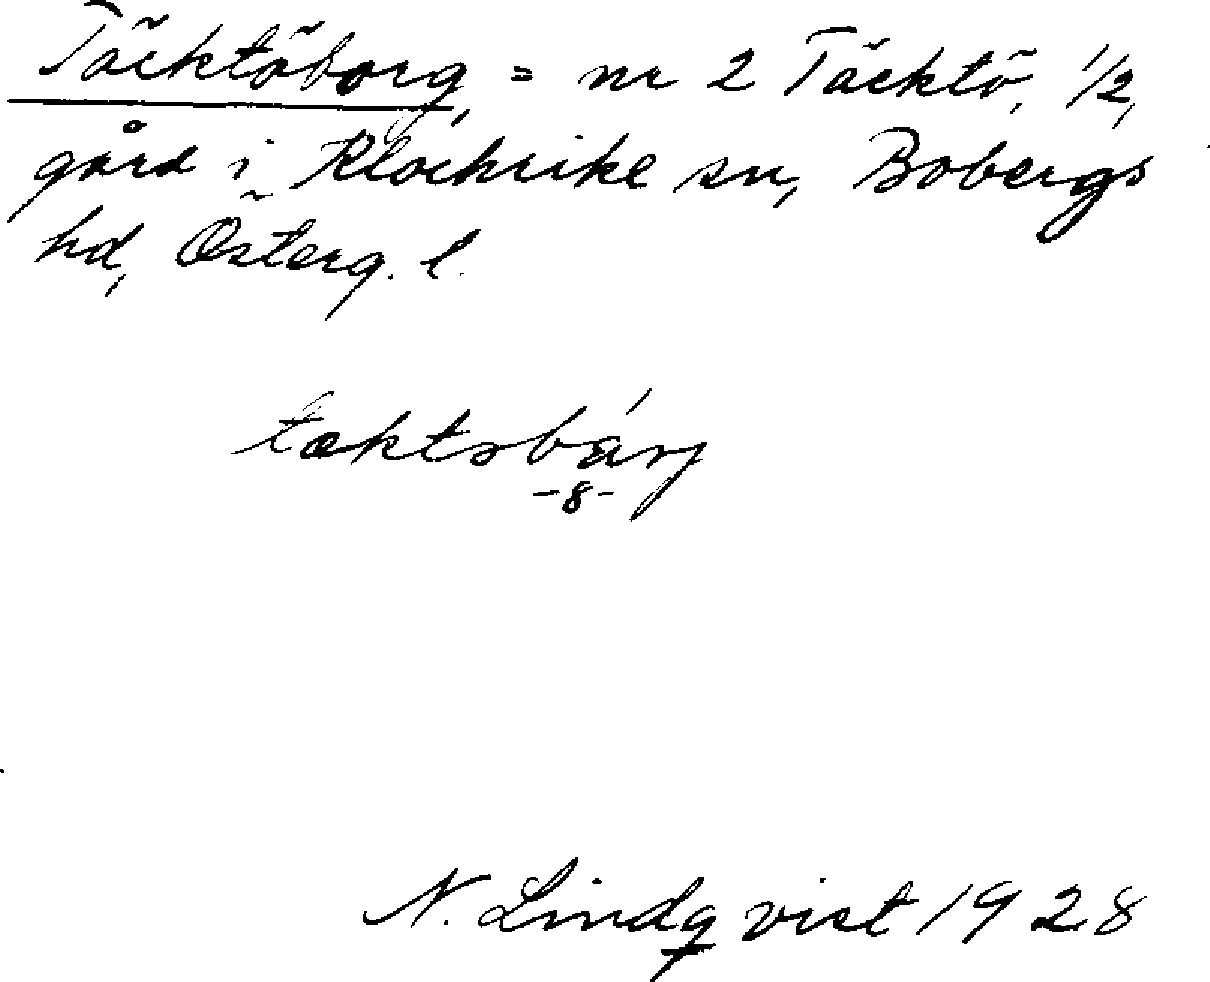 Täcktöborg, = nr 2 Täcktö, 1/2,
gård i Klockrike sn, Bobergs
hd, Österg. l.
-8-
N. Lindqvist 1928